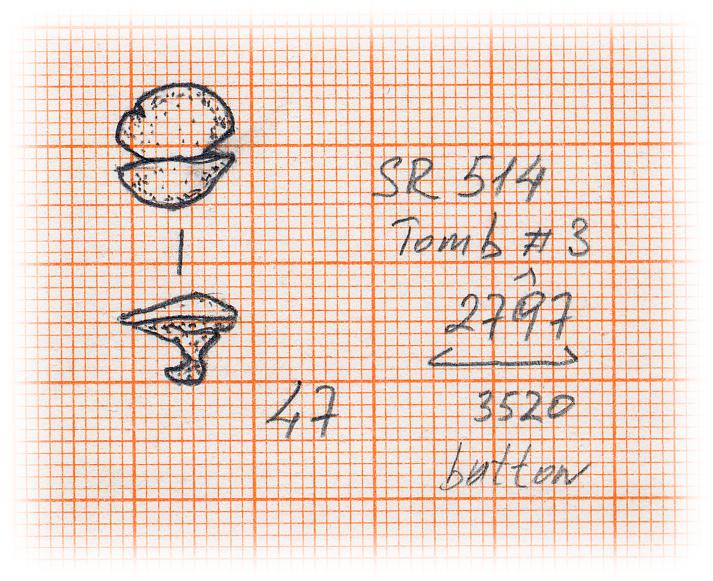 SR 514
Tomb # 3
2797
3520
button
47